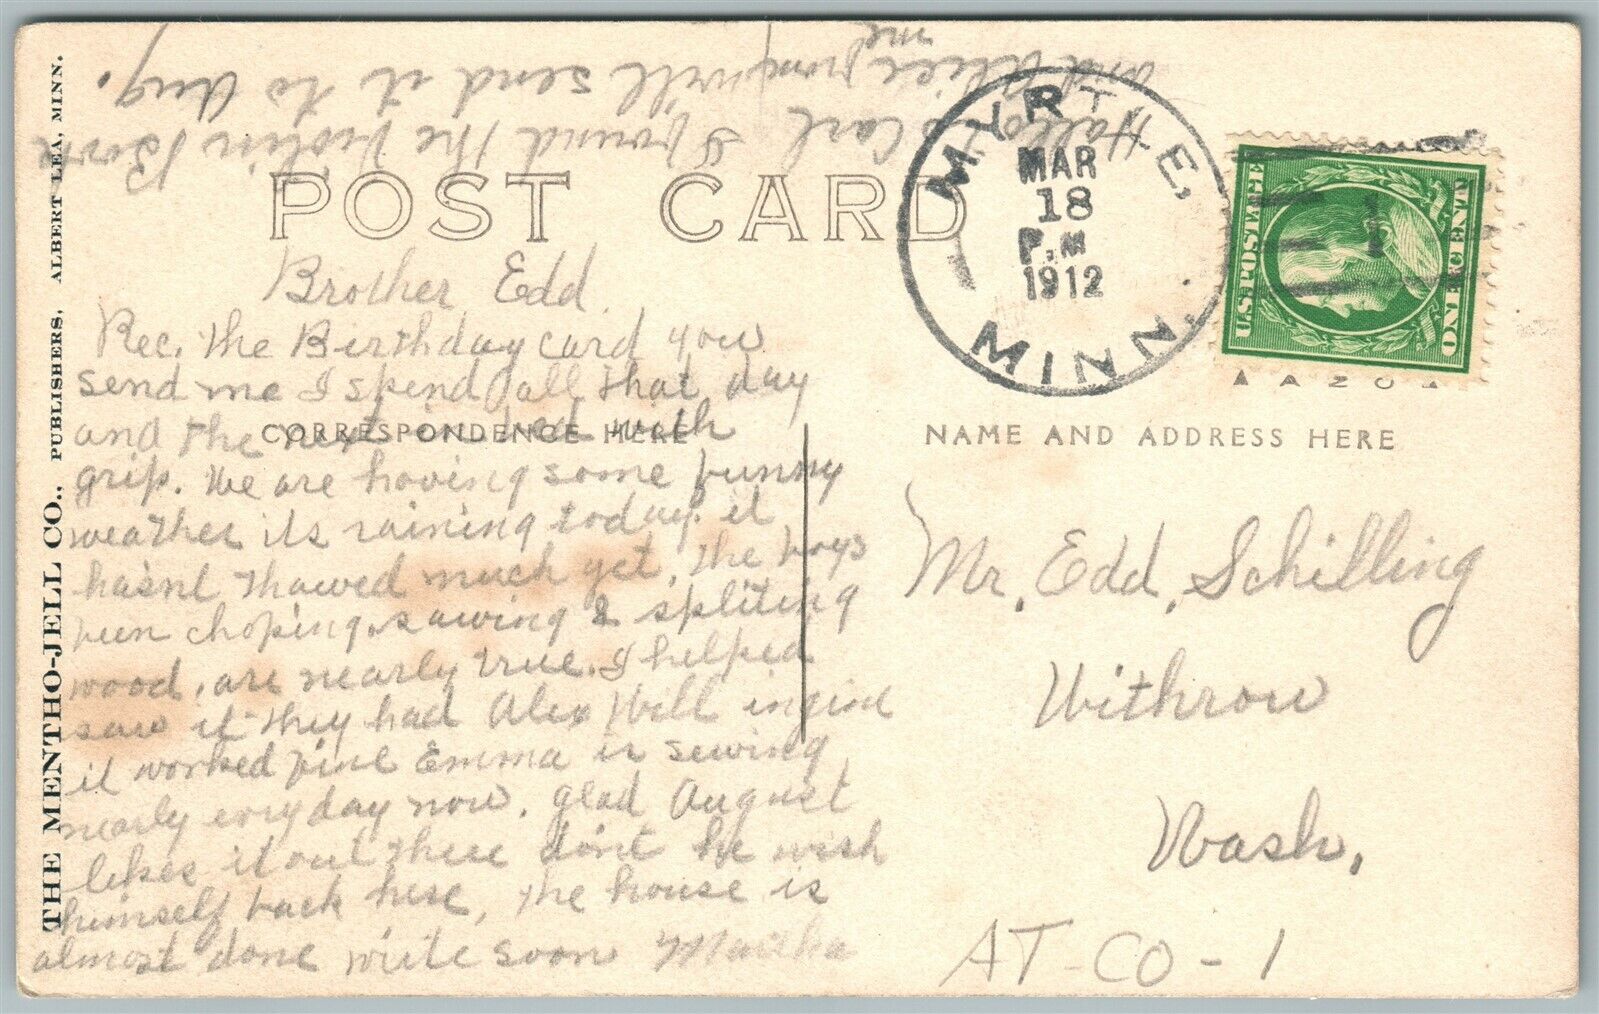 Hallo to Carl I wound the Violin Bow
and Alice from me will send it to Aug.
POST CARD
MYRTLE,
MAR
18
P.M
1912
MINN.
U.S. POSTAGE
ONE CENT
Brother Edd
Rec. the Birthday card you
send me I spend all that day
and the next in bed with
CORRESPONDENCE HERE
grip. We are having some funny
weather its raining today. it
hasnt thawed much yet, the boys
been choping, sawing & spliting
wood, are nearly true. I helped
saw it they had Alex Hill ingine
it worked fine Emma is sewing
nearly evry day now, glad August
likes it out there dont he wish
himself back here, the house is
almost done write soon Martha
NAME AND ADDRESS HERE
Mr. Edd. Schilling
Withrow
Wash.
AT-CO-1
THE MENTHO-JELL CO., PUBLISHERS, ALBERT LEA, MINN.